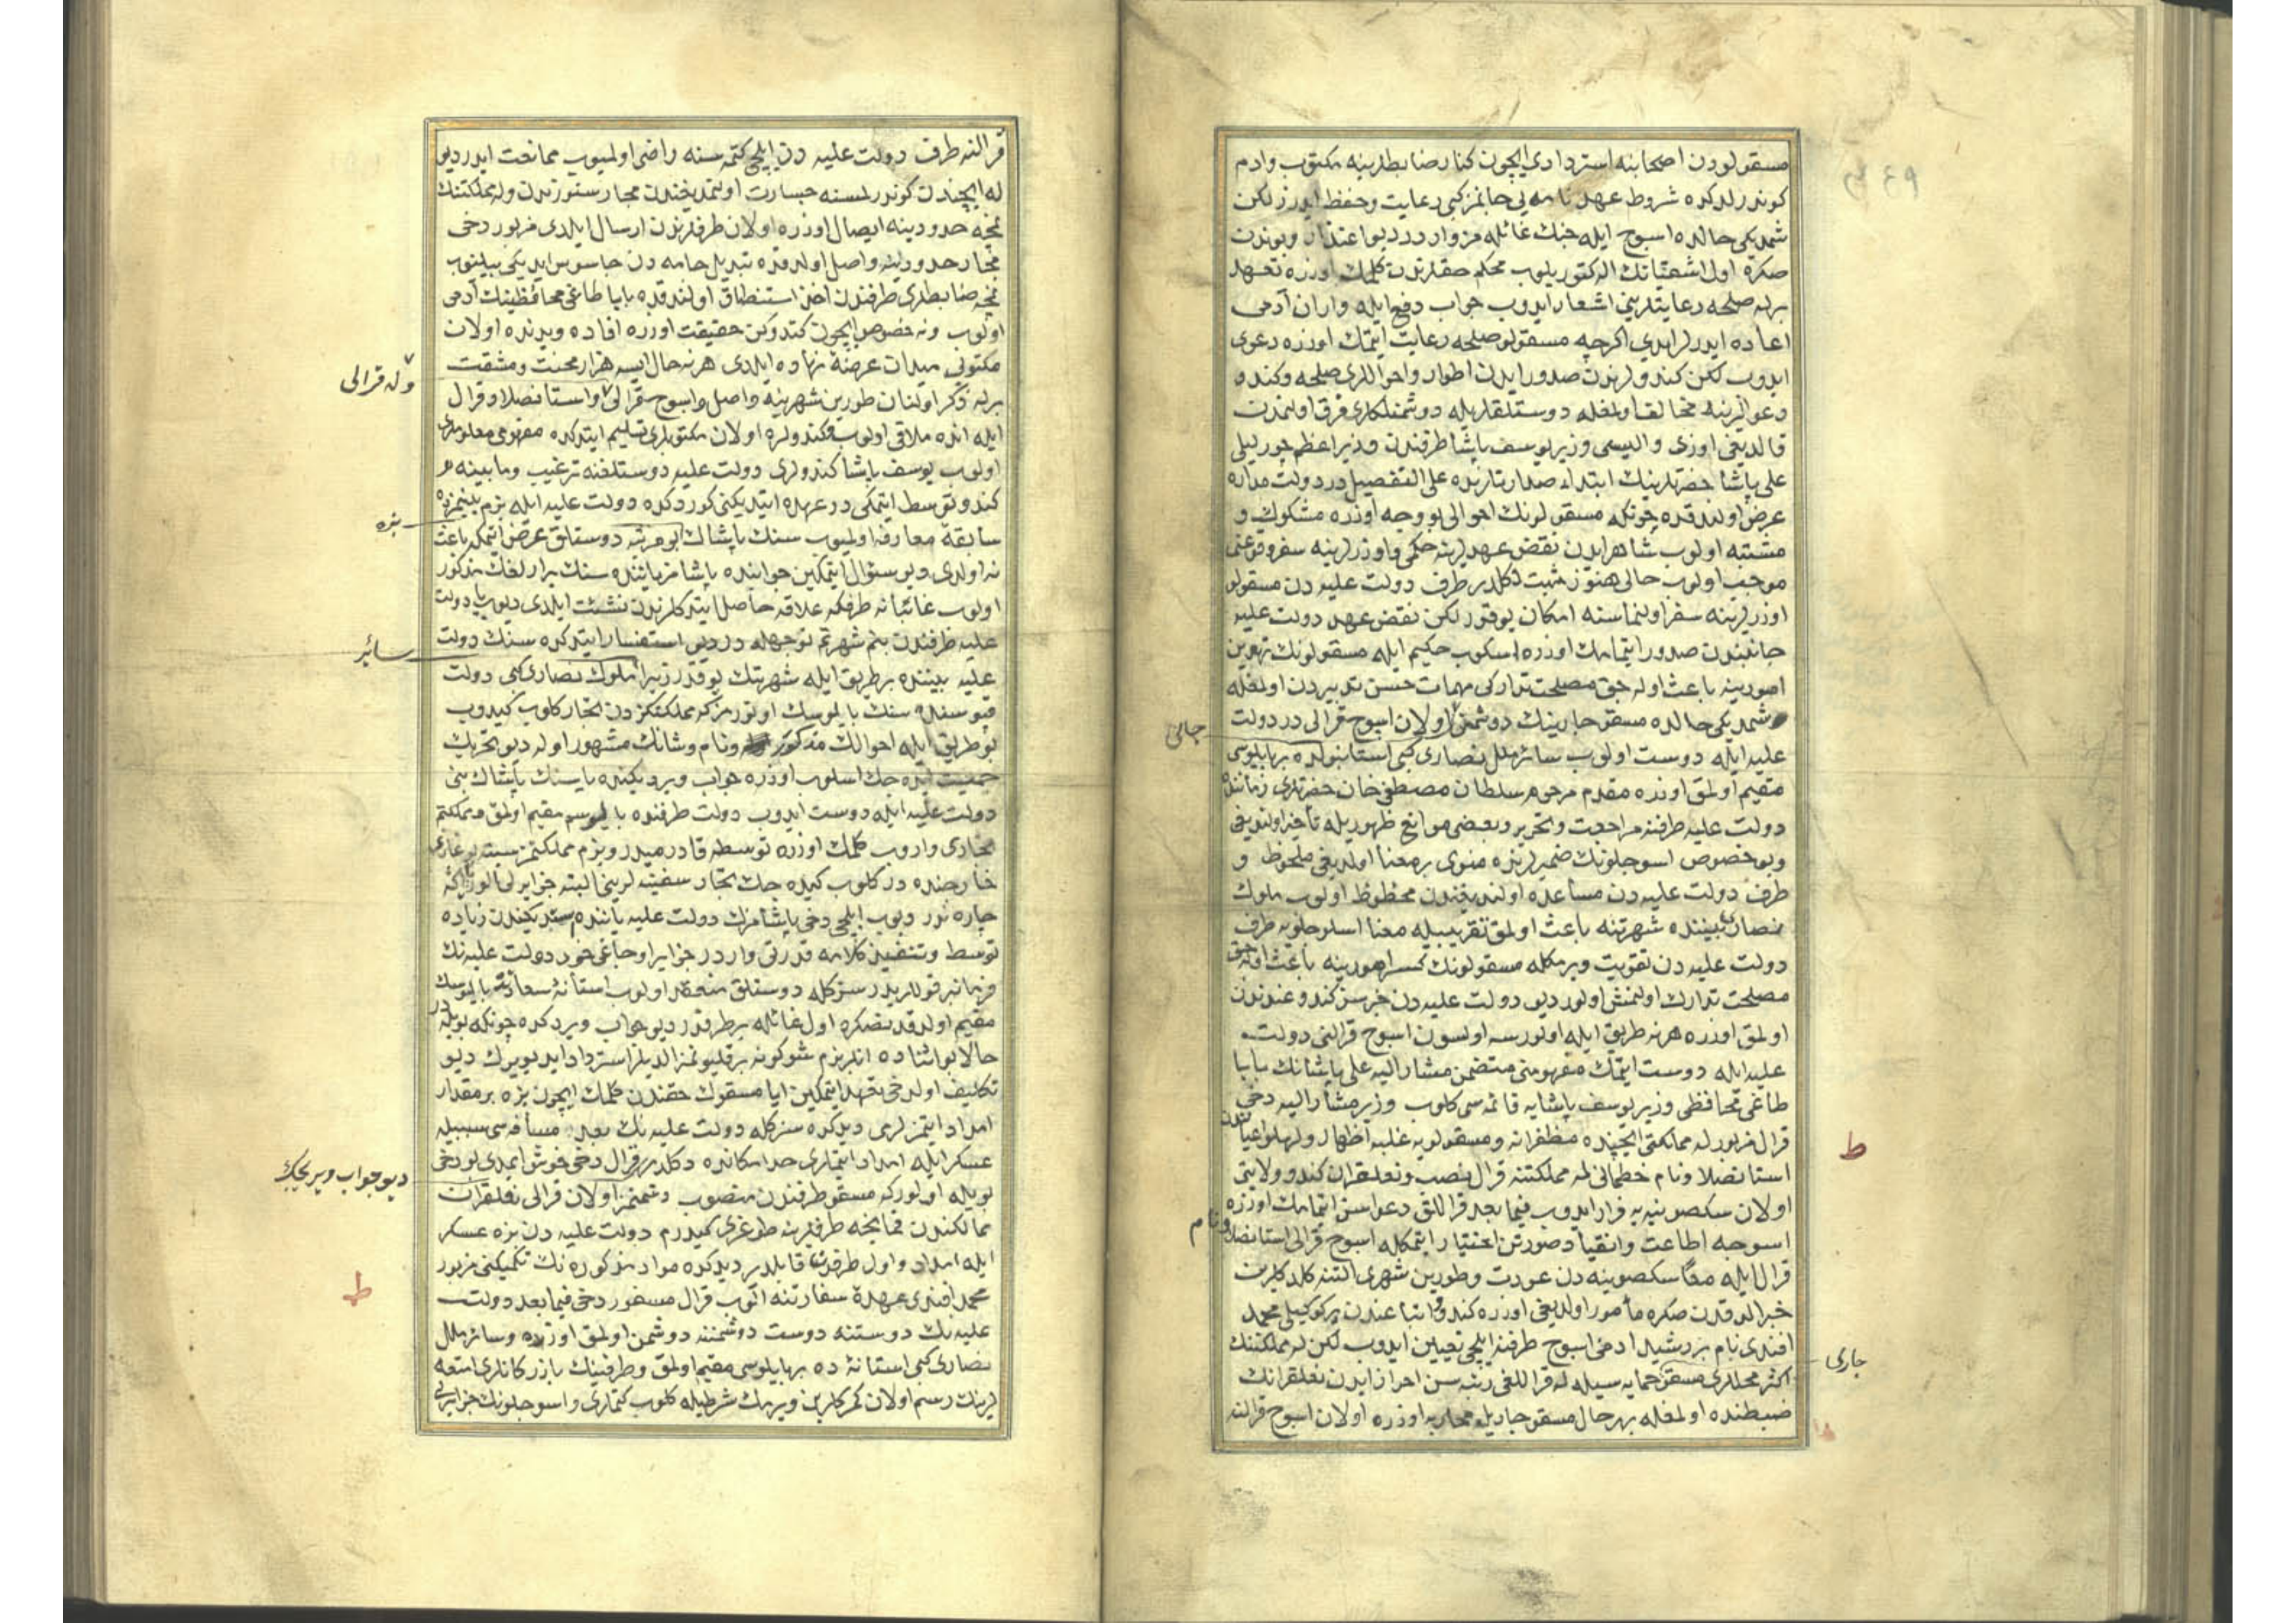 مسقولودن اصحابنه استردادی ایچون کنار ضابطلرینه مکتوب و ادم
کوندرلدکده شروط عهدنامه یی جانمز کبی رعایت و حفظ ایدرز لکن
شمدیکی حالده اسوج ایله جنك غائله مز واردر دیو اعتذار و بوندن
صکره اول اشقیانك اله کتوریلوب محکم حقلرندن کلمك اوزره تعهد
برله صلحه رعایتلرینی اشعار ایدوب جواب دفع ایله واران آدمی
اعاده ایدرلر ایدی اکرچه مسقولو صلحه رعایت ایتمك اوزره دعوی
ایدوب لکن کندولرندن صدور ایدن اطوار و احواللری صلحه و کندو
دعوالرینه مخالف اولمغله دوستلقلریله دوشمنلکلری فرق اولنمدن
قالدیغی اوزی والیسی وزیر یوسف پاشا طرفندن وزیر اعظم چورلیلی
علی پاشا حضرتلرینك ابتداء صدارتلرنده علی التفصیل در دولت مداره
عرض اولندقده چونکه مسقولونك احوالی بو وجه اوزره مشکوك و
مشتبه اولوب شاهراهدن نقض عهدلرینه حکمی و اوزرلرینه سفر وقوعنی
موجب اولوب حالی هنوز مثبت دکلدر طرف دولت علیه دن مسقولو
اوزرلرینه سفر اولنماسنه امکان یوقدر لکن نقض عهد دولت علیه
جانبندن صدور ایتمامك اوزره اسکوب حکیم ایله مسقولونك تهوین
امورینه باعث اوله جق مصلحت تدارکی مهمات حسن تدبیردن اولمغله
شمدیکی حالده مسقو چارینك دوشمنی اولان اسوج قرالی در دولت
جانی
علیه ایله دوست اولوب سائر ملل نصاری کبی استانبولده بر بالیوسی
مقیم اولمق اوزره مقدم مرحوم سلطان مصطفی خان حضرتلری زماننده
دولت علیه طرفنه مراجعت و تحریر و بعضی موانع ظهوریله تأخیر اولندیغی
و بو خصوص اسوجلونك ضمیرلرنده منوی بر معنا اولدیغی ملحوظ و
طرف دولت علیه دن مساعده اولندیغندن محظوظ اولوب ملوك
نصاری بیننده شهرتنه باعث اولمق تقریبیله معنا اسوجلویه طرف
دولت علیه دن تقویت ویرمکله مسقولونك کسر امورینه باعث اوله جق
مصلحت تدارك اولنمش اولور دیو دولت علیه دن خبرسز کندو عندندن
اولمق اوزره هر نه طریق ایله اولورسه اولسون اسوج قرالنی دولت
علیه ایله دوست ایتمك مفهومنی متضمن مشار الیه علی پاشانك بابا
طاغی محافظی وزیر یوسف پاشایه قائمه سی کلوب وزیر مشار الیه دخی
قرال مزبور له مملکتی ایچنده مظفرانه و مسقولویه غلبه اظهار و لهلو اعیانندن
استانصلاو نام خطمانی له مملکتنه قرال نصب و نعلقران کندو ولایتی
اولان سکصونیه یه فرار ایدوب فیما بعد قراللق دعواسن ایتمامك اوزره
اسوجه اطاعت و انقیاد صورتن اختیار ایتمکله اسوج قرالی استانصلاو نام
قرال ایله معا سکصونیه دن عودت و طورین شهری التنه کلدکلرین
خبر الدقدن صکره مأمور اولدیغی اوزره کندو اتباعندن یرکوکیلی محمد
افندی نام بر رشید ادمی اسوج طرفنه ایلچی تعیین ایدوب لکن له مملکتنك
اکثر محللری مسقو حمایه سیله له قراللغی رتبه سن احراز ایدن نعلقرانك
چاری
ضبطنده اولمغله بهر حال مسقو چاریله محاربه اوزره اولان اسوج قرالنه
ط
قرالنه طرف دولت علیه دن ایلچی کتمه سنه راضی اولمیوب ممانعت ایدر دیو
له ایچندن کوندرلمسنه جسارت اولنمدیغندن مجارستورندن وله مملکتنك
نمچه حدودینه ایصال اوزره اولان طرفلرندن ارسال ایلدی مزبور دخی
مجار حدودینه واصل اولدقده تبدیل جامه دن جاسوس ایدیکی بیلنوب
نمچه ضابطلری طرفندن اخذ و استنطاق اولندقده بابا طاغی محافظینك آدمی
اولوب ونه خصوص ایچون کتدوکن حقیقت اوزره افاده و یدنده اولان
مکتوبی میدان عرضه نهاده ایلدی هر نه حال ایسه هزار محنت و مشقت
برله ذکر اولنان طورین شهرینه واصل و اسوج قرالی و استانصلاو قرال
وله قرالی
ایله انده ملاقی اولوب و کندولره اولان مکتوبلری تسلیم ایتدکده مفهومی معلوملری
اولوب یوسف پاشا کندولری دولت علیه دوستلغنه ترغیب و مابینه
کندو توسط ایتمکی در عهده ایتدیکنی کوردکده دولت علیه ایله بزم بینمزده
بزه
سابقه معارفه اولمیوب سنك پاشاك بو مرتبه دوستلق عرض ایتمکه باعث
نه اولدی دیو سئوال ایتمکین جوابنده پاشامز یاننده سنك یرارلغك مذکور
اولوب غائبانه طرفکه علاقه حاصل ایتدکلرندن نشئت ایلدی دیوب یا دولت
علیه طرفندن بنم شهرتم نه وجهله در دیو استفسار ایتدکده سنك دولت
علیه بیننده بر طریق ایله شهرتك یوقدر زیرا ملوك نصاری کبی دولت
سائر
قپوسنده سنك بالیوسك اوتورمز که مملکتکزدن تجار کلوب کیدوب
بو طریق ایله احوالك مذکور و نام و شانك مشهور اوله دیو تحریك
حمیت ایده جك اسلوب اوزره جواب ویردیکنده یا سنك پاشاك بنی
دولت علیه ایله دوست ایدوب دولت طرفنده بالیوسم مقیم اولمق و مملکتم
تجاری واروب کلمك اوزره توسطه قادرمیدر و بزم مملکتمز سبته بوغازی
خارجنده در کلوب کیده جك تجار سفینه لرینی البته جزایرلی الور اکا نه
چاره اولور دیوب ایلچی دخی پاشامزك دولت علیه یاننده سندیکندن زیاده
توسط و تنفیذ کلامه قدرتی واردر جزایر اوجاغی خود دولت علیه نك
فرمانبر قوللریدر سزکله دوستلق منعقد اولوب استانه سعادتده بالیوسك
مقیم اولدقدنصکره اول غائله بر طرفدر دیو جواب ویردکده چونکه بویله در
حالا بو اثناده انلر بزم شو کونه بر قلیونمز الدیلر استرداد ایدیویرك دیو
تکلیف اولدخی تعهد ایتمکین ایا مسقونك حقندن کلمك ایچون بزه بر مقدار
امداد ایتمزلرمی دیدکده سزکله دولت علیه نك بعد مسافه سی سببیله
عسکر ایله امداد ایتملری حد امکانده دکلدر قرال دخی خوش ایمدی بو دخی
دیو جواب ویریجك
بویله اولورکه مسقو طرفندن منصوب دشمنمز اولان قرالی نعلقران
ممالکندن قمانیچه طرفلرینه طوغری کیدرم دولت علیه دن بزه عسکر
ایله امداد و اول طرفدن قابلدر دیدکده مواد مذکوره نك تکمیلنی مزبور
محمد افندی عهده سفارتنه الوب قرال مسفور دخی فیما بعد دولت
ط
علیه نك دوستنه دوست دوشمننه دوشمن اولمق اوزره و سائر ملل
نصاری کبی استانه ده بر بالیوسی مقیم اولمق و طرفینك بازرکانلری امتعه
لرینك رسم اولان کمرکلرین ویرمك شرطیله کلوب کتملری و اسوجلونك جزایرلی